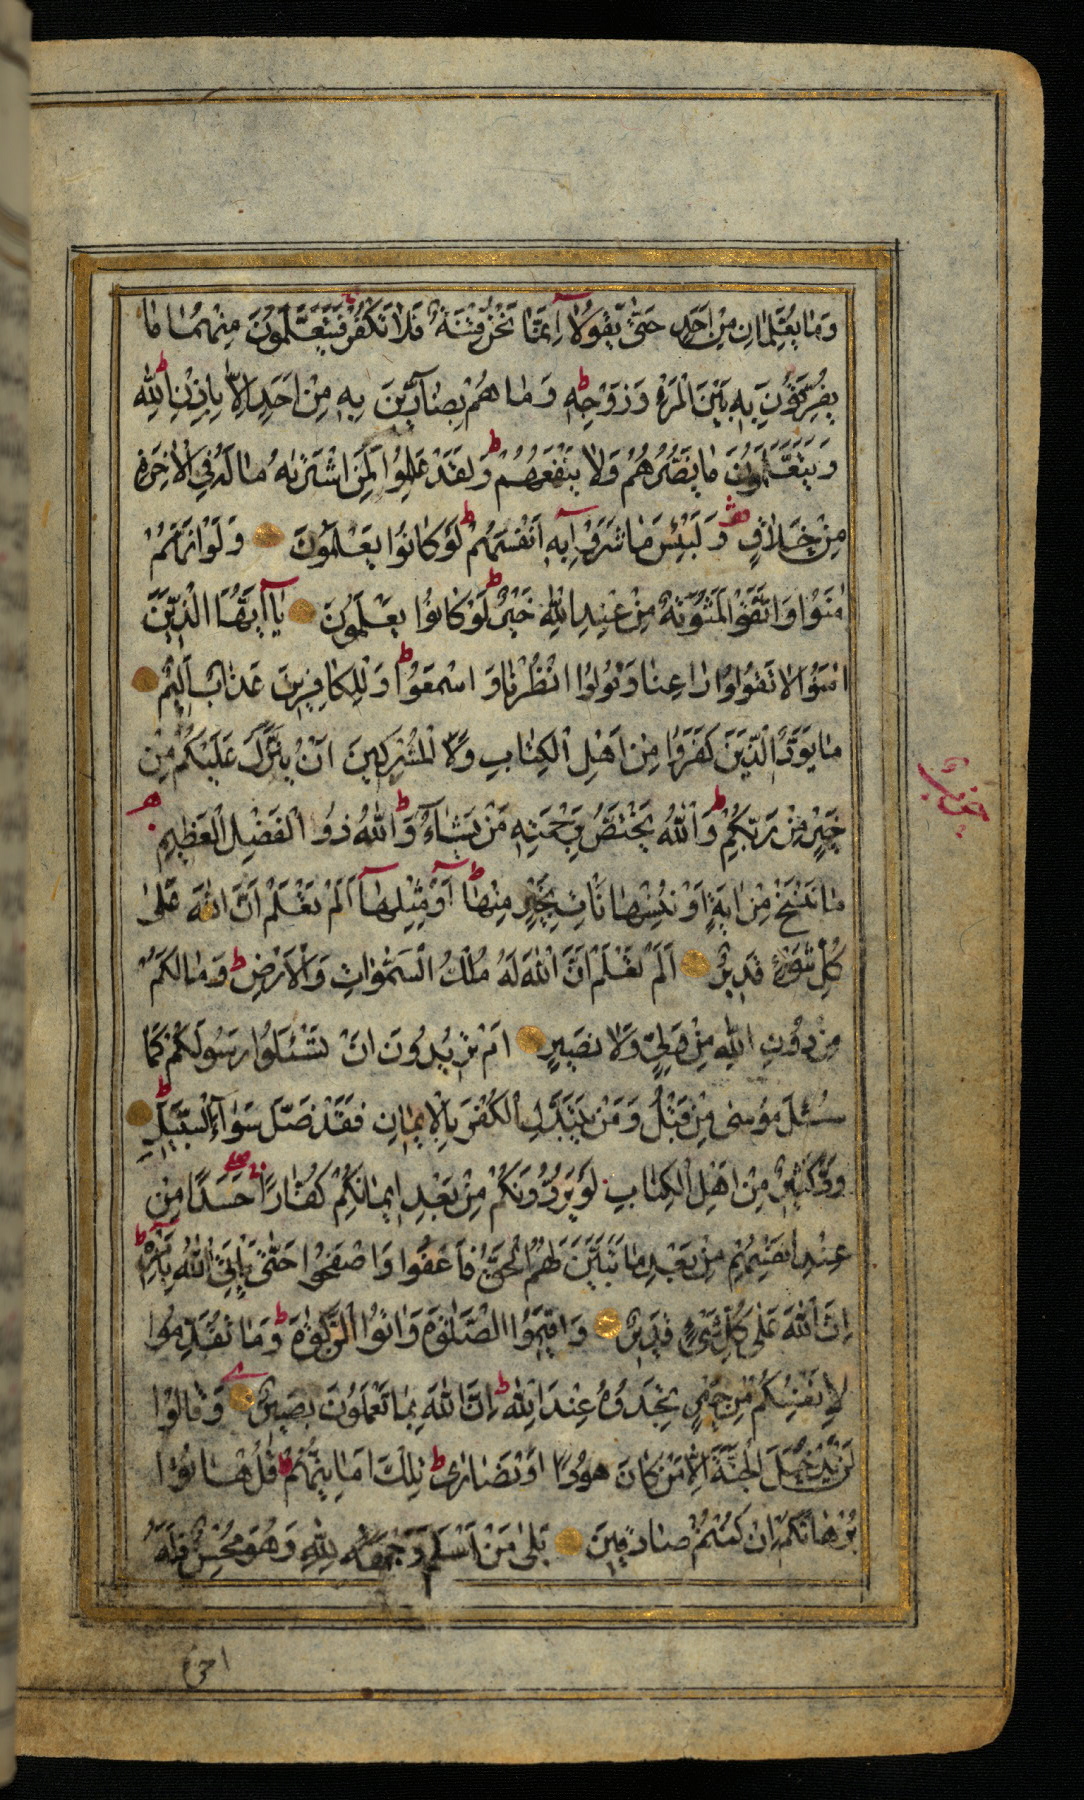 وَمٰا يُعَلِّمٰانِ مِنْ اَحَدٍ حَتّٰى يَقُولٰا اِنَّمٰا نَحْنُ فِتْنَةٌ فَلاٰ تَكْفُرْ فَيَتَعَلَّمُونَ مِنْهُمٰا مٰا
يُفَرِّقُونَ بِهِ بَيْنَ الْمَرْءِ وَزَوْجِهِ وَمٰا هُمْ بِضٰآرّٖينَ بِهِ مِنْ اَحَدٍ اِلاّٰ بِاِذْنِ اللّٰهِ
وَيَتَعَلَّمُونَ مٰا يَضُرُّهُمْ وَلاٰ يَنْفَعُهُمْ وَلَقَدْ عَلِمُوا لَمَنِ اشْتَرٰيهُ مٰا لَهُ فِي الْاٰخِرَةِ
مِنْ خَلاٰقٍ وَلَبِئْسَ مٰا شَرَوْا بِهِ اَنْفُسَهُمْ لَوْ كٰانُوا يَعْلَمُونَ وَلَوْ اَنَّهُمْ
اٰمَنُوا وَاتَّقَوْا لَمَثُوبَةٌ مِنْ عِنْدِ اللّٰهِ خَيْرٌ لَوْ كٰانُوا يَعْلَمُونَ يٰآ اَيُّهَا الَّذِينَ
اٰمَنُوا لاٰ تَقُولُوا رٰاعِنٰا وَقُولُوا انْظُرْنٰا وَاسْمَعُوا وَلِلْكٰافِرِينَ عَذٰابٌ اَلِيمٌ
مٰا يَوَدُّ الَّذِينَ كَفَرُوا مِنْ اَهْلِ الْكِتٰابِ وَلاَ الْمُشْرِكِينَ اَنْ يُنَزَّلَ عَلَيْكُمْ مِنْ
خَيْرٍ مِنْ رَبِّكُمْ وَاللّٰهُ يَخْتَصُّ بِرَحْمَتِهِ مَنْ يَشٰآءُ وَاللّٰهُ ذُو الْفَضْلِ الْعَظِيمِ
مٰا نَنْسَخْ مِنْ اٰيَةٍ اَوْ نُنْسِهٰا نَاْتِ بِخَيْرٍ مِنْهٰا اَوْ مِثْلِهٰا اَلَمْ تَعْلَمْ اَنَّ اللّٰهَ عَلٰى
كُلِّ شَيْءٍ قَدِيرٌ اَلَمْ تَعْلَمْ اَنَّ اللّٰهَ لَهُ مُلْكُ السَّمٰوٰاتِ وَالْاَرْضِ وَمٰا لَكُمْ
مِنْ دُونِ اللّٰهِ مِنْ وَلِيٍّ وَلاٰ نَصِيرٍ اَمْ تُرِيدُونَ اَنْ تَسْئَلُوا رَسُولَكُمْ كَمٰا
سُئِلَ مُوسٰى مِنْ قَبْلُ وَمَنْ يَتَبَدَّلِ الْكُفْرَ بِالْاِيمٰانِ فَقَدْ ضَلَّ سَوٰآءَ السَّبِيلِ
وَدَّ كَثِيرٌ مِنْ اَهْلِ الْكِتٰابِ لَوْ يَرُدُّونَكُمْ مِنْ بَعْدِ اِيمٰانِكُمْ كُفّٰارًا حَسَدًا مِنْ
عِنْدِ اَنْفُسِهِمْ مِنْ بَعْدِ مٰا تَبَيَّنَ لَهُمُ الْحَقُّ فَاعْفُوا وَاصْفَحُوا حَتّٰى يَاْتِيَ اللّٰهُ بِاَمْرِهِ
اِنَّ اللّٰهَ عَلٰى كُلِّ شَيْءٍ قَدِيرٌ وَاَقِيمُوا الصَّلٰوةَ وَاٰتُوا الزَّكٰوةَ وَمٰا تُقَدِّمُوا
لِاَنْفُسِكُمْ مِنْ خَيْرٍ تَجِدُوهُ عِنْدَ اللّٰهِ اِنَّ اللّٰهَ بِمٰا تَعْمَلُونَ بَصِيرٌ وَقٰالُوا
لَنْ يَدْخُلَ الْجَنَّةَ اِلاّٰ مَنْ كٰانَ هُودًا اَوْ نَصٰارٰى تِلْكَ اَمٰانِيُّهُمْ قُلْ هٰاتُوا
بُرْهٰانَكُمْ اِنْ كُنْتُمْ صٰادِقِينَ بَلٰى مَنْ اَسْلَمَ وَجْهَهُ لِلّٰهِ وَهُوَ مُحْسِنٌ فَلَهُ
حزب